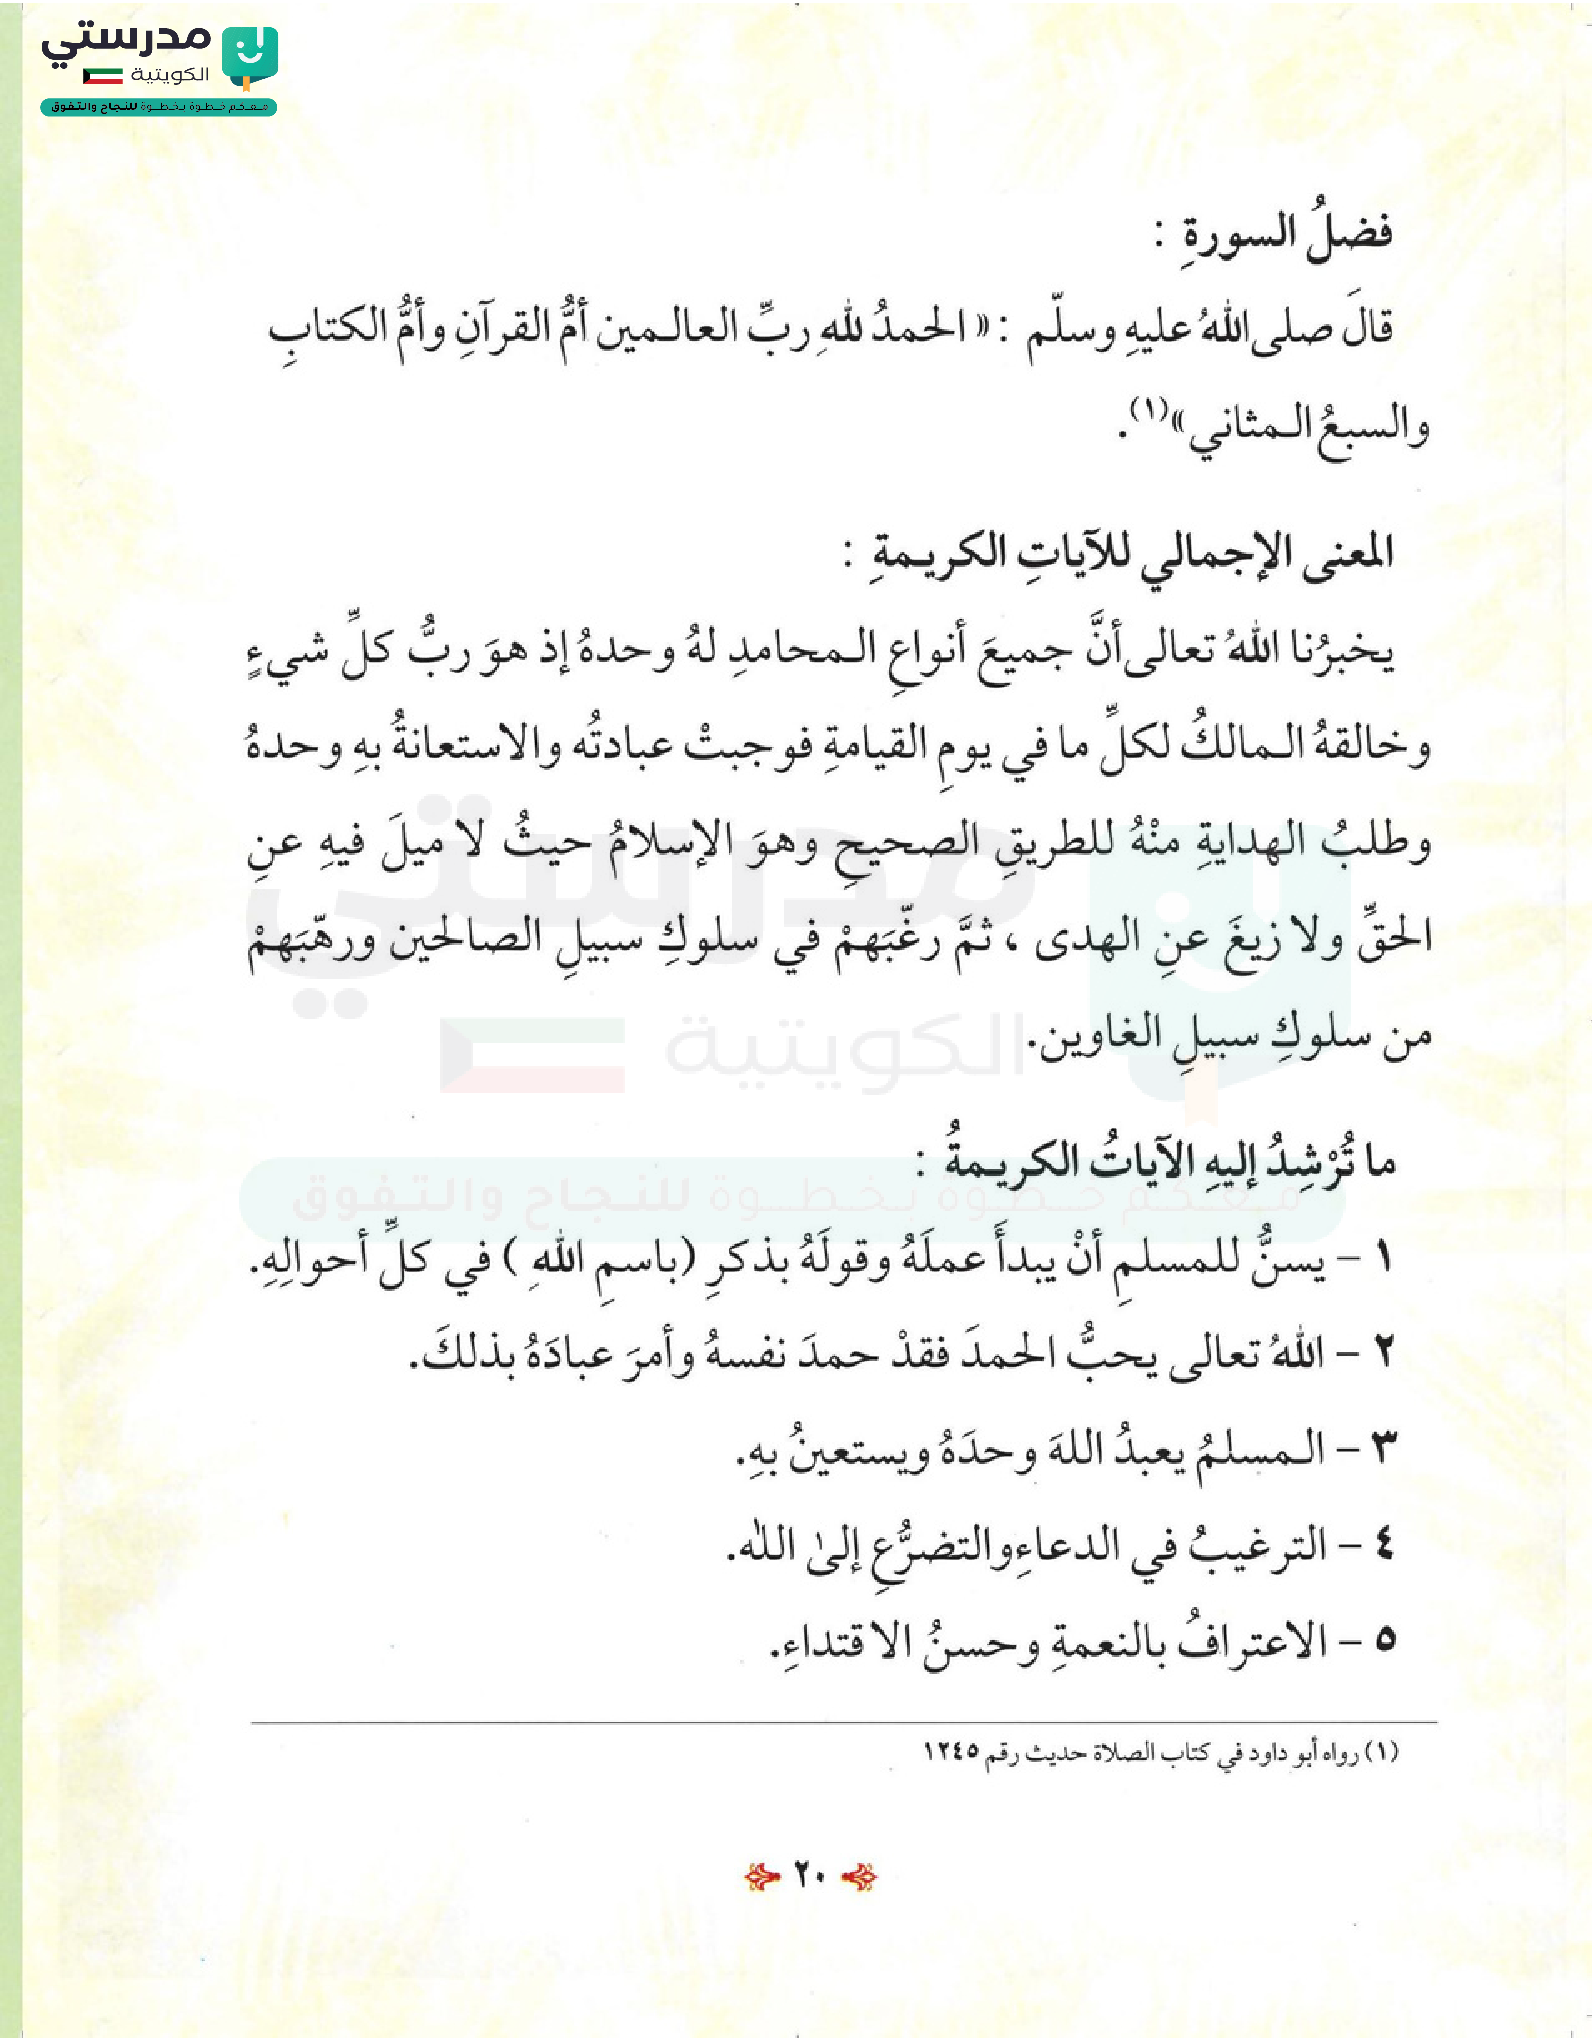 مدرستي
الكويتية
معكم خطوة بخطوة للنجاح والتفوق
فضلُ السورةِ :
قالَ صلى اللهُ عليهِ وسلّم : «الحمدُ للهِ ربِّ العالـمين أمُّ القرآنِ وأمُّ الكتابِ
والسبعُ الـمثاني»(١).
المعنى الإجمالي للآياتِ الكريـمةِ :
يخبرُنا اللهُ تعالى أنَّ جميعَ أنواعِ الـمحامدِ لهُ وحدهُ إذ هوَ ربُّ كلِّ شيءٍ
وخالقهُ الـمالكُ لكلِّ ما في يومِ القيامةِ فوجبتْ عبادتُه والاستعانةُ بهِ وحدهُ
وطلبُ الهدايةِ منْهُ للطريقِ الصحيحِ وهوَ الإسلامُ حيثُ لا ميلَ فيهِ عنِ
الحقِّ ولا زيغَ عنِ الهدى ، ثمَّ رغّبَهمْ في سلوكِ سبيلِ الصالحين ورهّبَهمْ
من سلوكِ سبيلِ الغاوين.
ما تُرْشِدُ إليهِ الآياتُ الكريـمةُ :
١ – يسنُّ للمسلمِ أنْ يبدأَ عملَهُ وقولَهُ بذكرِ (باسمِ اللهِ ) في كلِّ أحوالِهِ.
٢ – اللهُ تعالى يحبُّ الحمدَ فقدْ حمدَ نفسهُ وأمرَ عبادَهُ بذلكَ.
٣ – الـمسلمُ يعبدُ اللهَ وحدَهُ ويستعينُ بهِ.
٤ – الترغيبُ في الدعاءِ والتضرُّعِ إلىٰ الله.
٥ – الاعترافُ بالنعمةِ وحسنُ الاقتداءِ.
(١) رواه أبو داود في كتاب الصلاة حديث رقم ١٢٤٥
٢٠